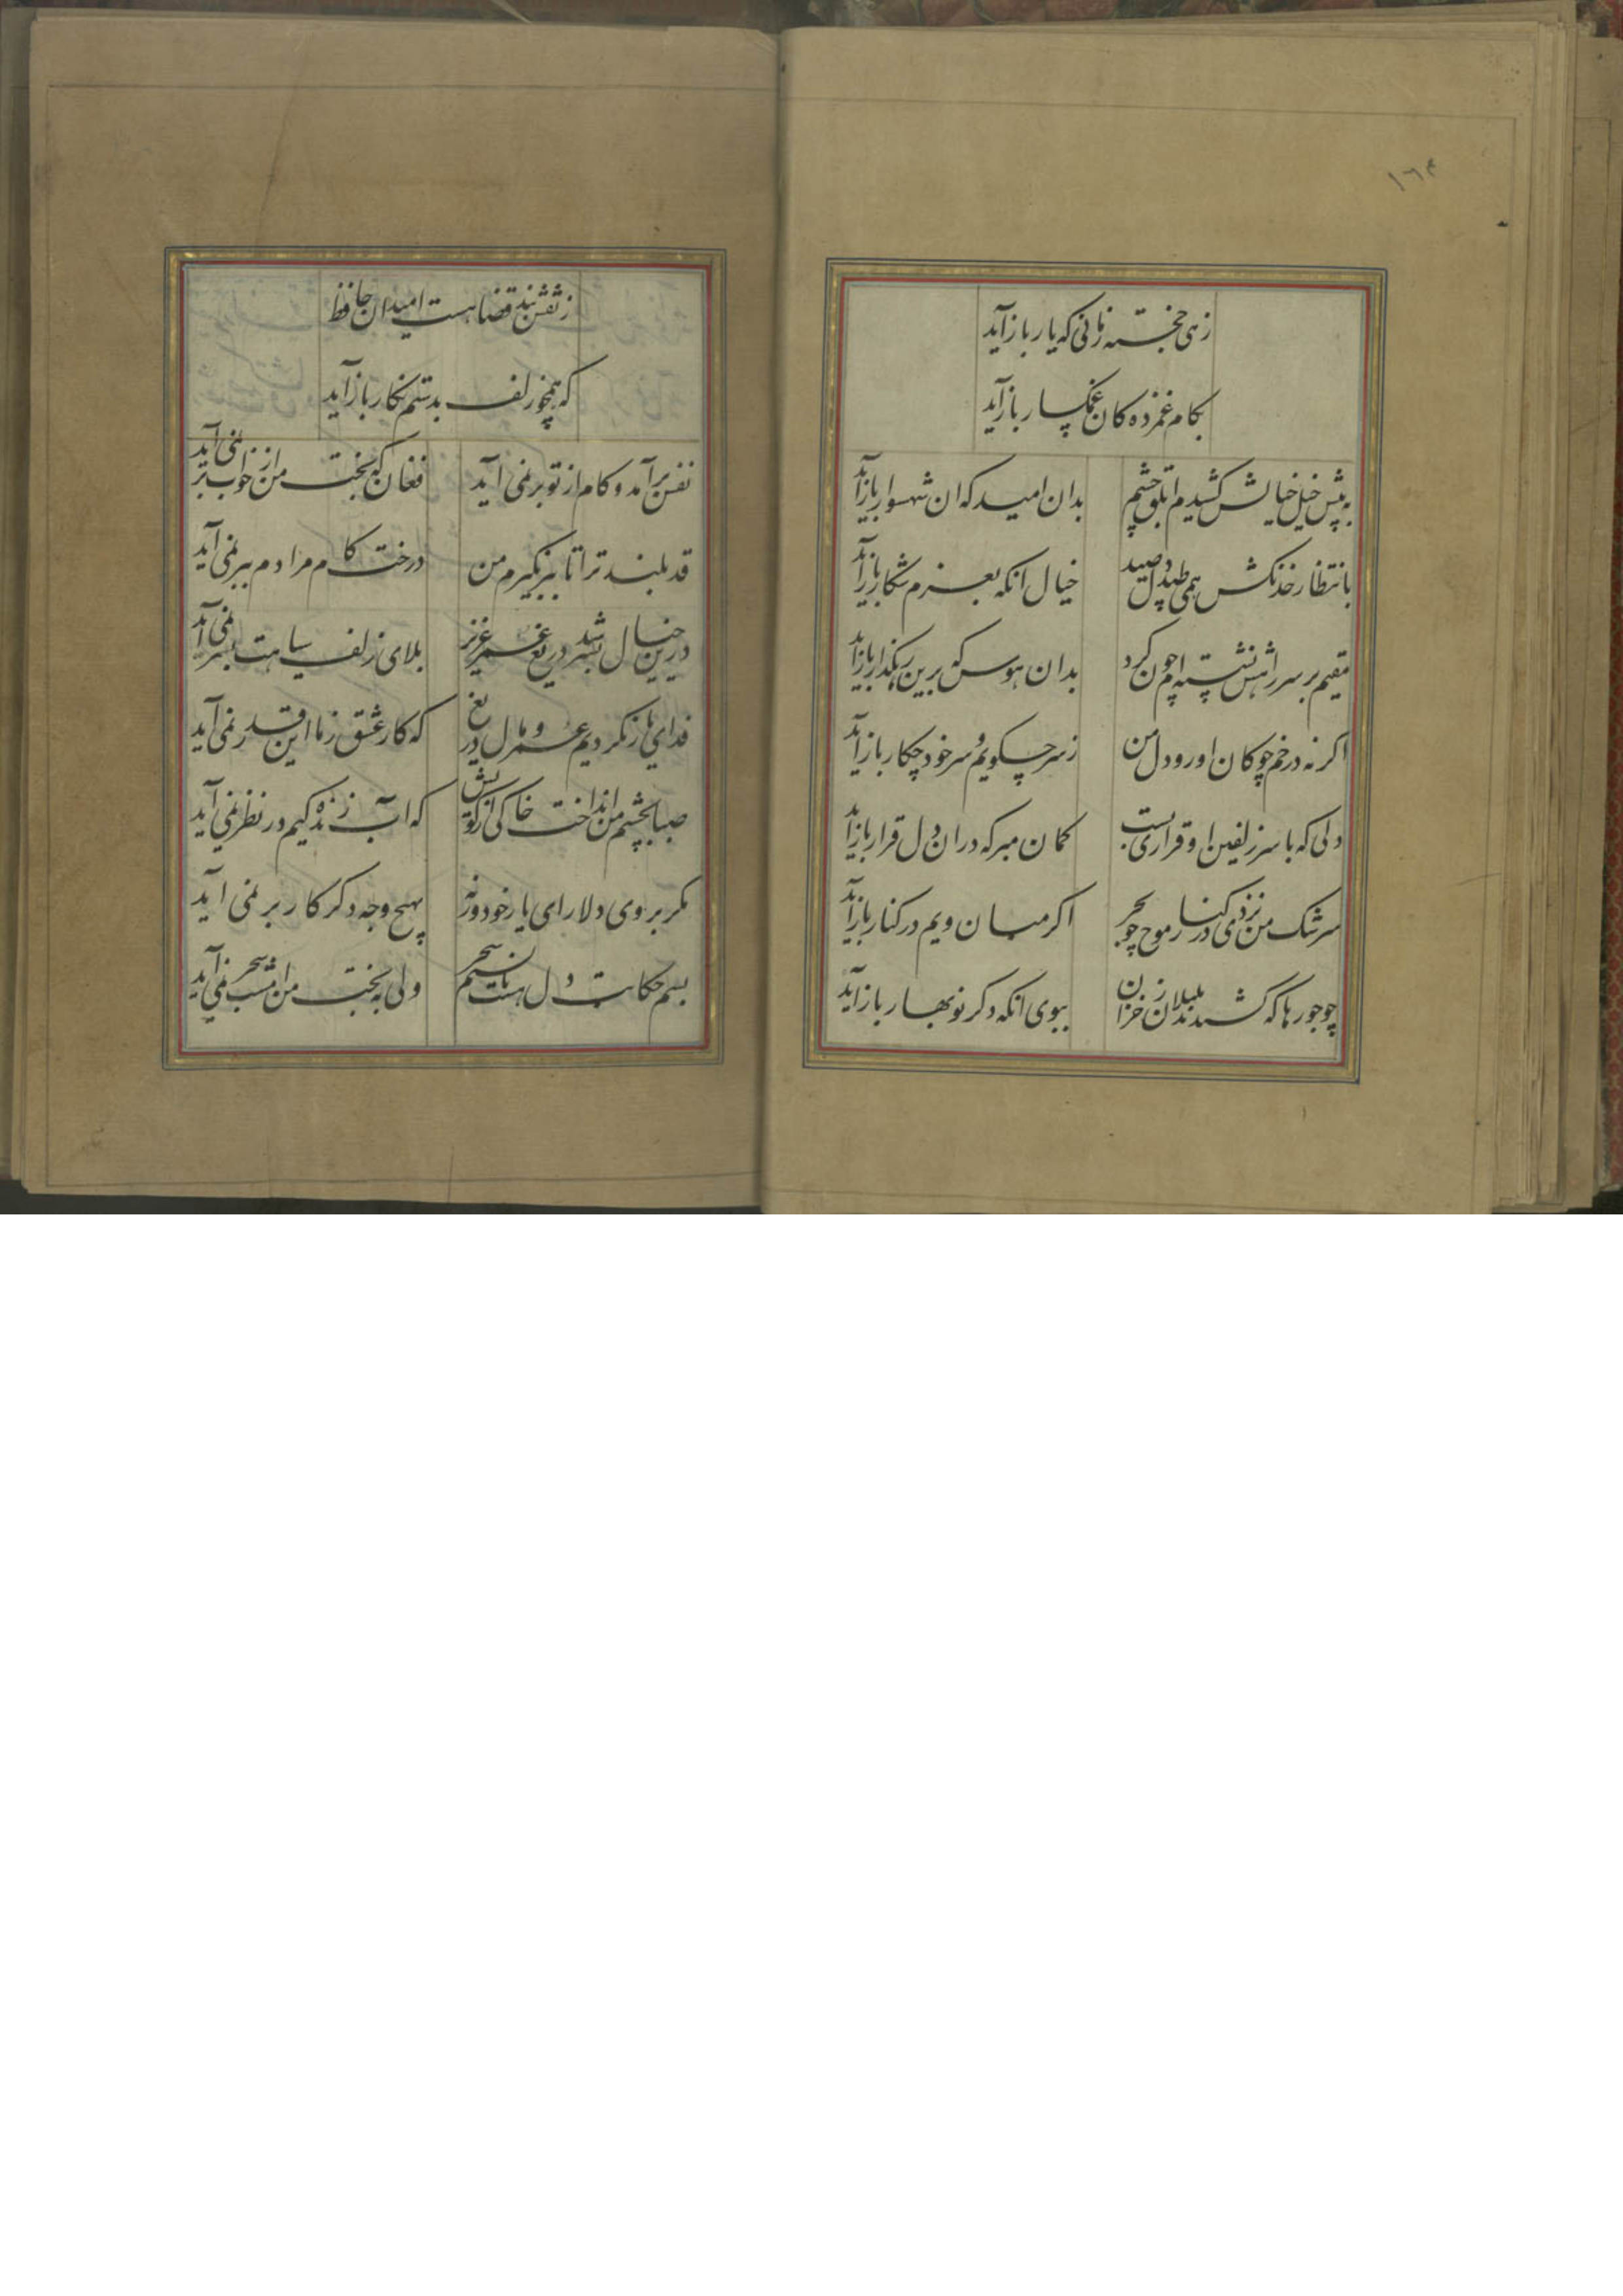 ١٦٤
زهی خجسته زمانی که یار باز آید
بکام غمزده کان غمکسار باز آید
به پیش خیل خیالش کشیدم ابلق چشم بدان امید که ان شهسوار باز آید
بانتظار خدنکش همی طپد دل صید خیال انکه بعزم شکار باز آید
مقیم بر سر راهش نشسته ام چون کرد بدان هوس که برین رهکذار باز آید
اکر نه در خم چوکان او رود دل من ز سر چکویم و سر خود چکار باز آید
دلی که با سر زلفین او قراری بست کمان مبر که در ان دل قرار باز آید
سرشک من نزدی در کنار موج چو بحر اکر میان ویم در کنار باز آید
چو جورها که کشیدند بلبلان ز خزان ببوی انکه دکر نوبهار باز آید
ز نقش بند قضا هست امید ان حافظ
که همچو زلف بدستم نکار باز آید
نفس بر آمد و کام از تو بر نمی آید فغان که بخت من از خواب بر نمی آید
قد بلند ترا تا ببر نکیرم من درخت کام مرادم ببر نمی آید
درین خیال بسر شد دریغ عمر عزیز بلای زلف سیاهت بسر نمی آید
فدای یار نکردیم عمر و مال دریغ که کار عشق ز ما این قدر نمی آید
صبا بچشم من انداخت خاکی از کویش که اب زنده کیم در نظر نمی آید
مکر بروی دلارای یار خود ورنه بهیچ وجه دکر کار بر نمی آید
بسم حکایت دل هست با نسیم سحر ولی به بخت من امشب سحر نمی آید